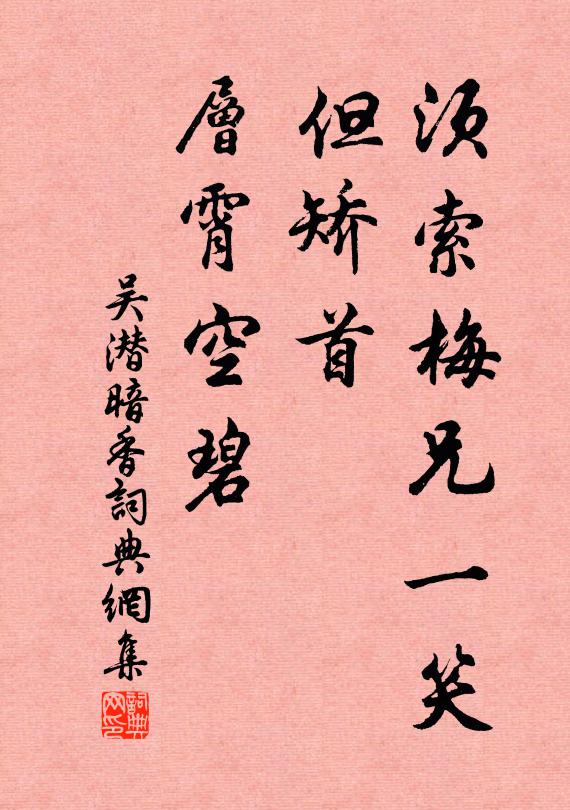 須索梅兄一笑
但矯首
層霄空碧
吳潜暗香詞典網集
詞典
网印